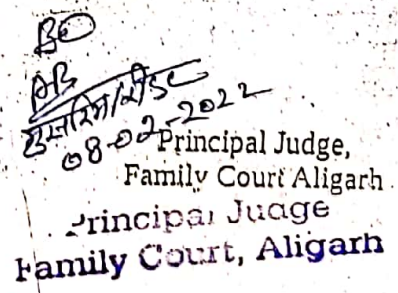 08-02-2022
Principal Judge,
Family Court Aligarh
Principal Judge
Family Court, Aligarh